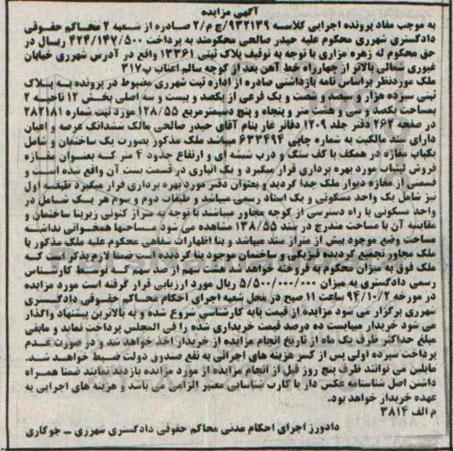 آگهی مزایده
به موجب مفاد پرونده اجرایی کلاسه ۹۳۲۱۳۹/ج م/۲ صادره از شعبه ۲ محاکم حقوقی
دادگستری شهرری محکوم علیه حیدر صالحی محکومند به پرداخت ۴۲۴/۱۴۷/۵۰۰ ریال در
حق محکوم له زهره مزاری با توجه به توقیف پلاک ثبتی ۱۳۳۶۱ واقع در آدرس شهرری خیابان
غیوری شمالی بالاتر از چهارراه خط آهن بعد از کوچه سالم اعتاب پ۳۱۷
ملک موردنظر براساس نامه بازداشتی صادره از اداره ثبت شهرری مضبوط در پرونده به پلاک
ثبتی سیزده هزار و سیصد و شصت و یک فرعی از یکصد و بیست و سه اصلی بخش ۱۲ ناحیه ۲
بمساحت یکصد و سی و هشت متر و پنجاه و پنج دسیمترمربع ۱۲۸/۵۵ مورد ثبت شماره ۲۸۲۱۸۱
در صفحه ۲۶۲ دفتر جلد ۱۲۰۹ دفاتر غار بنام آقای حیدر صالحی مالک ششدانگ عرصه و اعیان
دارای سند مالکیت به شماره چاپی ۶۳۳۴۹۴ میباشد ملک مذکور بصورت یک ساختمان و شامل
یکباب مغازه در همکف با کف سنگ و درب شیشه ای و ارتفاع حدود ۴ متر که بعنوان مغازه
فروش لبنیات مورد بهره برداری قرار میگیرد و یک انباری در قسمت پست آن واقع شده است و
قسمتی از مغازه دیوار ملک جدا گردید و بعنوان دفتر مورد بهره برداری قرار میگیرد طبقه اول
نیز شامل یک واحد مسکونی و یک استاد رسمی میباشد و طبقات دوم و سوم هر یک شامل دو
واحد مسکونی با راه دسترسی از کوچه مجاور میباشند با توجه به متراژ کنونی زیربنا ساختمان و
مقایسه آن با مساحت مندرج در سند ۱۳۸/۵۵ مشاهده می شود مساحتها همخوانی نداشته
مساحت وضع موجود بیش از متراژ سند میباشد و بنا اظهارات شفاهی محکوم علیه ملک مذکور با
ملک مجاور تجمیع گردیده فیزیکی و ساختمان موجود بنا گردیده است ضمنا لازم بذکر است که
ملک فوق به میزان محکوم به فروخته خواهد شد هشت سهم از صد سهم که توسط کارشناس
رسمی دادگستری به میزان ۵/۵۰۰/۰۰۰/۰۰۰ ریال مورد ارزیابی قرار گرفته است مورد مزایده
در مورخه ۹۴/۱۰/۲ ساعت ۱۱ صبح در محل شعبه اجرای احکام محاکم حقوقی دادگستری
شهرری برگزار می شود مزایده از قیمت پایه کارشناسی شروع شده و به بالاترین پیشنهاد واگذار
می شود خریدار میبایست ده درصد قیمت خریداری شده را فی المجلس پرداخت نماید و مابقی
مبلغ حداکثر ظرف یک ماه از تاریخ انجام مزایده از خریدار اخذ خواهد شد و در صورت عدم
پرداخت سپرده اولی پس از کسر هزینه های اجرائی به نفع صندوق دولت ضبط خواهد شد.
مایلین می توانند ظرف پنج روز قبل از انجام مزایده از مورد مزایده بازدید نمایند ضمنا همراه
داشتن اصل شناسنامه عکس دار یا کارت شناسایی معتبر الزامی می باشد و هزینه های اجرایی به
عهده خریدار خواهد بود.
م الف ۳۸۱۴
دادورز اجرای احکام مدنی محاکم حقوقی دادگستری شهرری ـ جوکاری